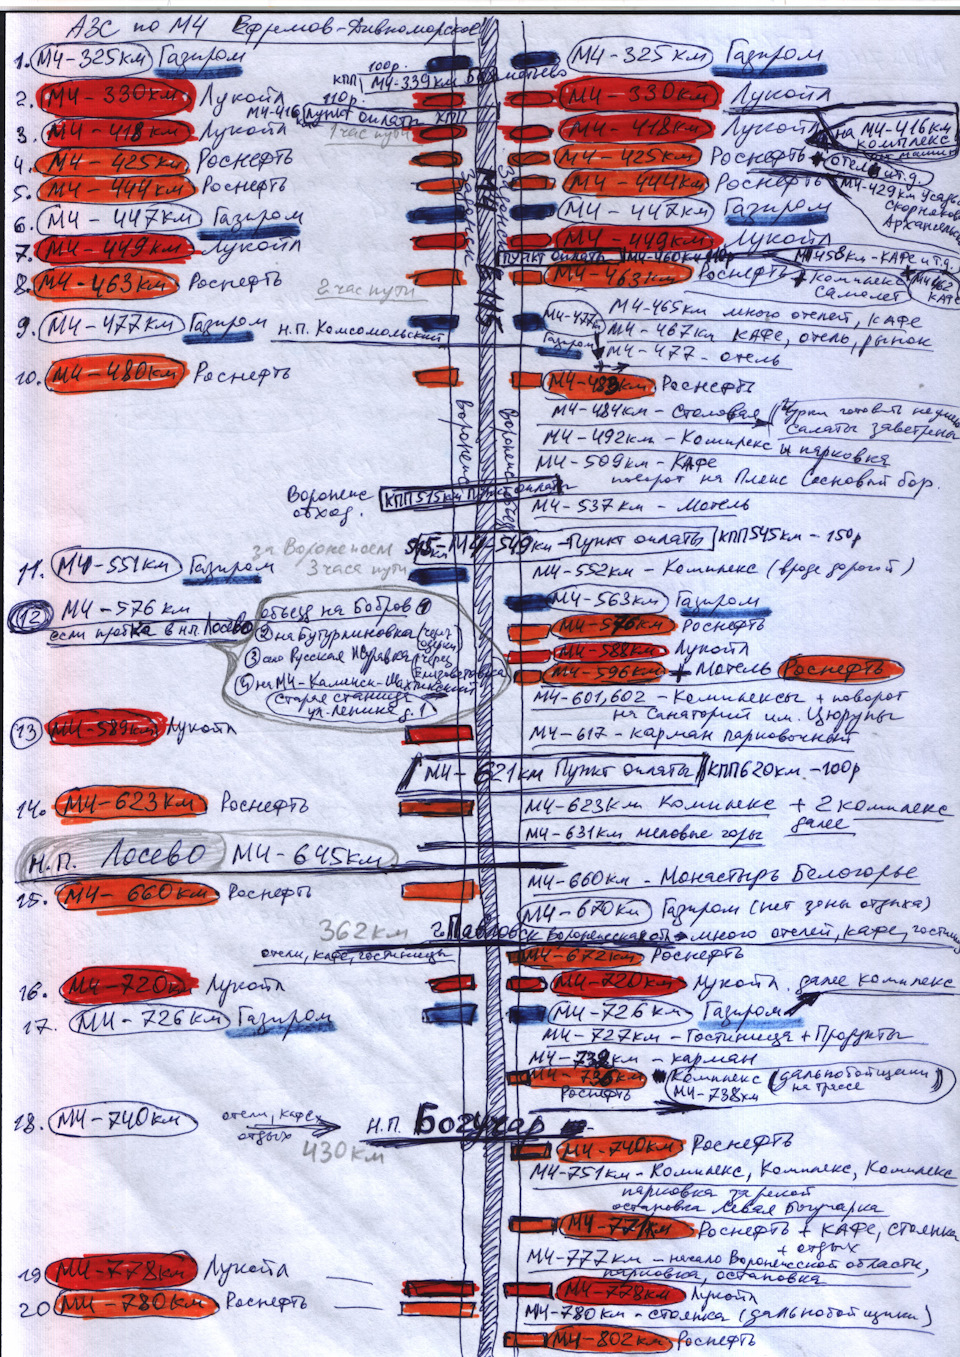 АЗС по М4 Ефремов-Дивноморское
1. М4-325км Газпром
М4-325км Газпром
100р.
КПП М4-339км
2. М4-330км Лукойл
М4-330км Лукойл
110р.
М4-416 пункт оплаты КПП
1 час пути
3. М4-418км Лукойл
М4-418км Лукойл
на М4-416км
комплекс
4. М4-425км Роснефть
М4-425км Роснефть + отель и т.д.
5. М4-444км Роснефть
М4-444км Роснефть
М4-429км
Архангельское
6. М4-447км Газпром
М4-447км Газпром
7. М4-449км Лукойл
М4-449км Лукойл
пункт оплаты М4-460км 110р
М4-458км-КАФЕ и т.д.
8. М4-463км Роснефть
М4-463км Роснефть + комплекс
Самолет
М4-462
КАФЕ
2 час пути
М4 Е 115
9. М4-477км Газпром н.п. Комсомольский
М4-477км
Газпром
М4-465км много отелей, КАФЕ
М4-467км КАФЕ, отель, рынок
М4-477 - отель
10. М4-480км Роснефть
М4-483км Роснефть
М4-484км - Столовая
салаты заветрены
М4-492км - Комплекс и парковка
М4-509км - КАФЕ
поворот на Плекс Сосновый бор.
Воронеж
обход.
КПП 515км Пункт оплаты
М4-537км - Мотель
М4-549км - Пункт оплаты КПП 545км - 150р
за Воронежем
3 часа пути
11. М4-551км Газпром
М4-552км - Комплекс (вроде дорогой)
12 М4-576км
если пробка в н.п. Лосево
объезд на Бобров 1
2 на Бутурлиновка
3 село Русская Журавка (через
4 на М4-Каменск-Шахтинский
Старая станица
ул. Ленина д.1
М4-563км Газпром
М4-576км Роснефть
М4-588км Лукойл
М4-596км + Мотель Роснефть
М4-601,602 - Комплексы + поворот
на Санаторий им. Цюрупы
13 М4-589км Лукойл
М4-617 - карман парковочный
М4-621км Пункт оплаты КПП 620км - 100р
14. М4-623км Роснефть
М4-623км Комплекс + 2 комплекс
далее
М4-631км меловые горы
Н.П. Лосево М4-645км
15. М4-660км Роснефть
М4-660км - Монастырь Белогорье
М4-670км Газпром (нет зоны отдыха)
362км
г. Павловск Воронежская обл много отелей, кафе, гостиниц
отели, кафе, гостиницы
М4-672км Роснефть
16. М4-720к Лукойл
М4-720км Лукойл. далее комплекс
17. М4-726км Газпром
М4-726км Газпром
М4-727км - Гостиница + Продукты
М4-732км - карман
М4-736км
Роснефть
Комплекс
М4-738км
(дальнобойщики
на трассе)
18. М4-740км
отели, кафе,
отдых
Н.П. Богучар
430км
М4-740км Роснефть
М4-751км - Комплекс, Комплекс, Комплекс
парковка за рекой
остановка Левая Богучарка
М4-771км Роснефть + КАФЕ, стоянка
+ отдых
М4-777км - начало Воронежской области,
парковка, остановка
19 М4-778км Лукойл
М4-778км Лукойл
20 М4-780км Роснефть
М4-780км - стоянка (дальнобойщики)
М4-802км Роснефть